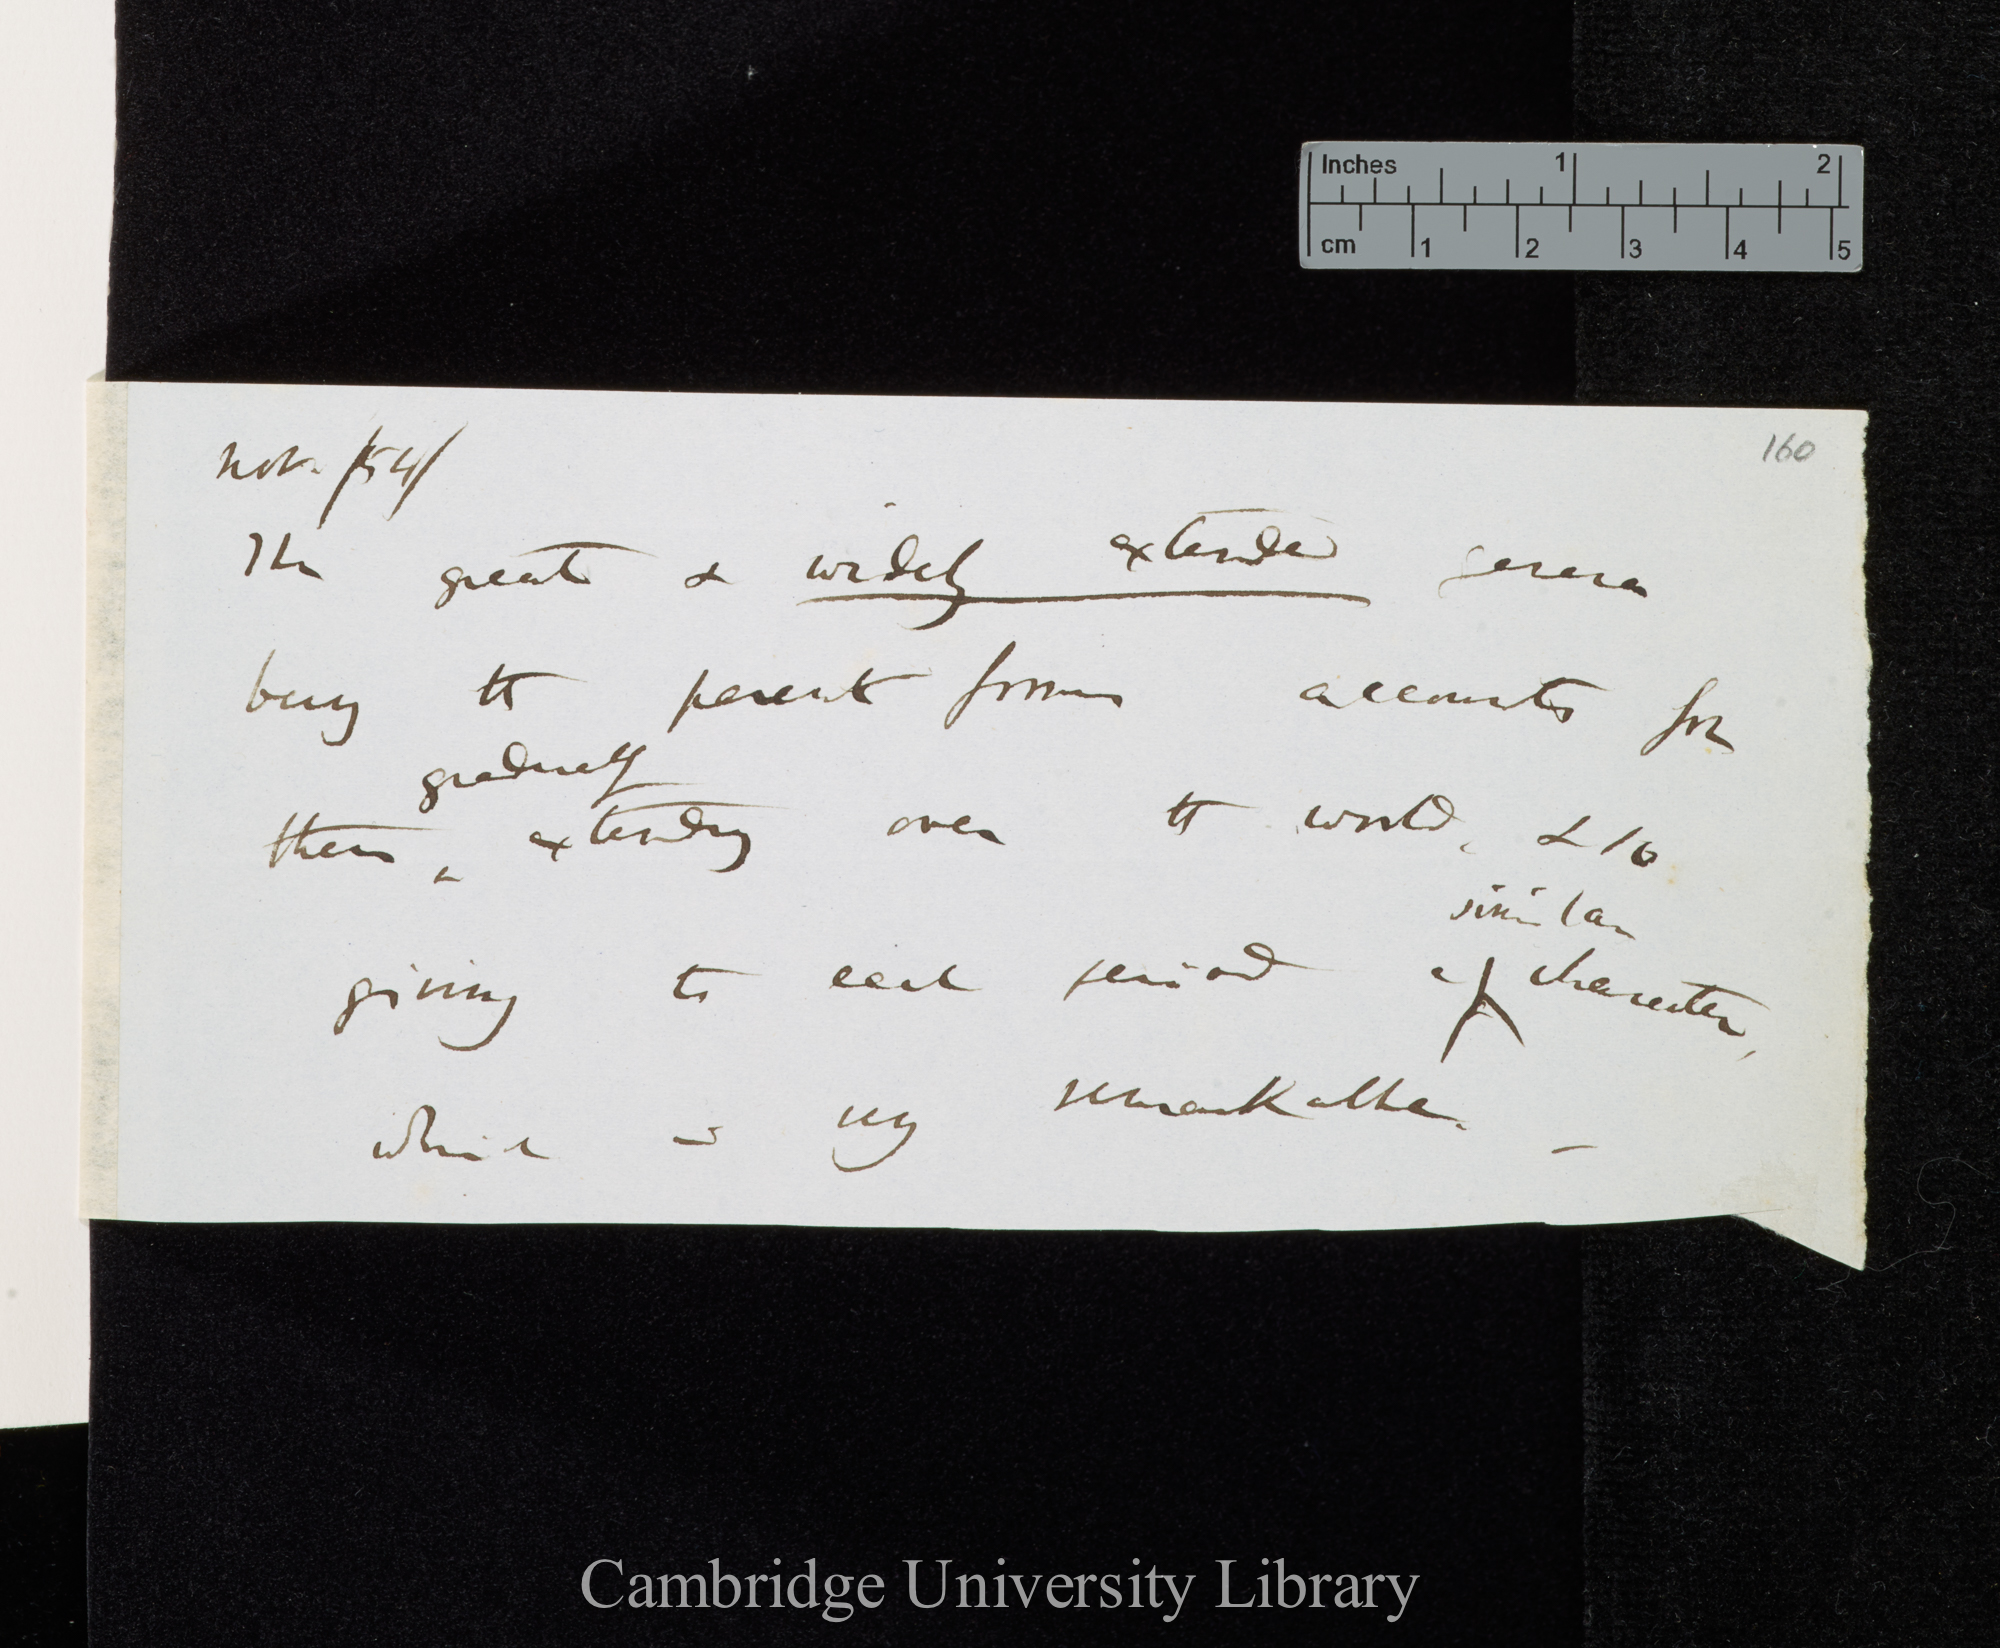 Inches 1 2
cm 1 2 3 4 5
160
Nov. /54/
The great & widely extended genera
being the parent forms accounts for
gradually
them extending over the world, & to
similar
giving to each period a character,
which is very remarkable. —
Cambridge University Library